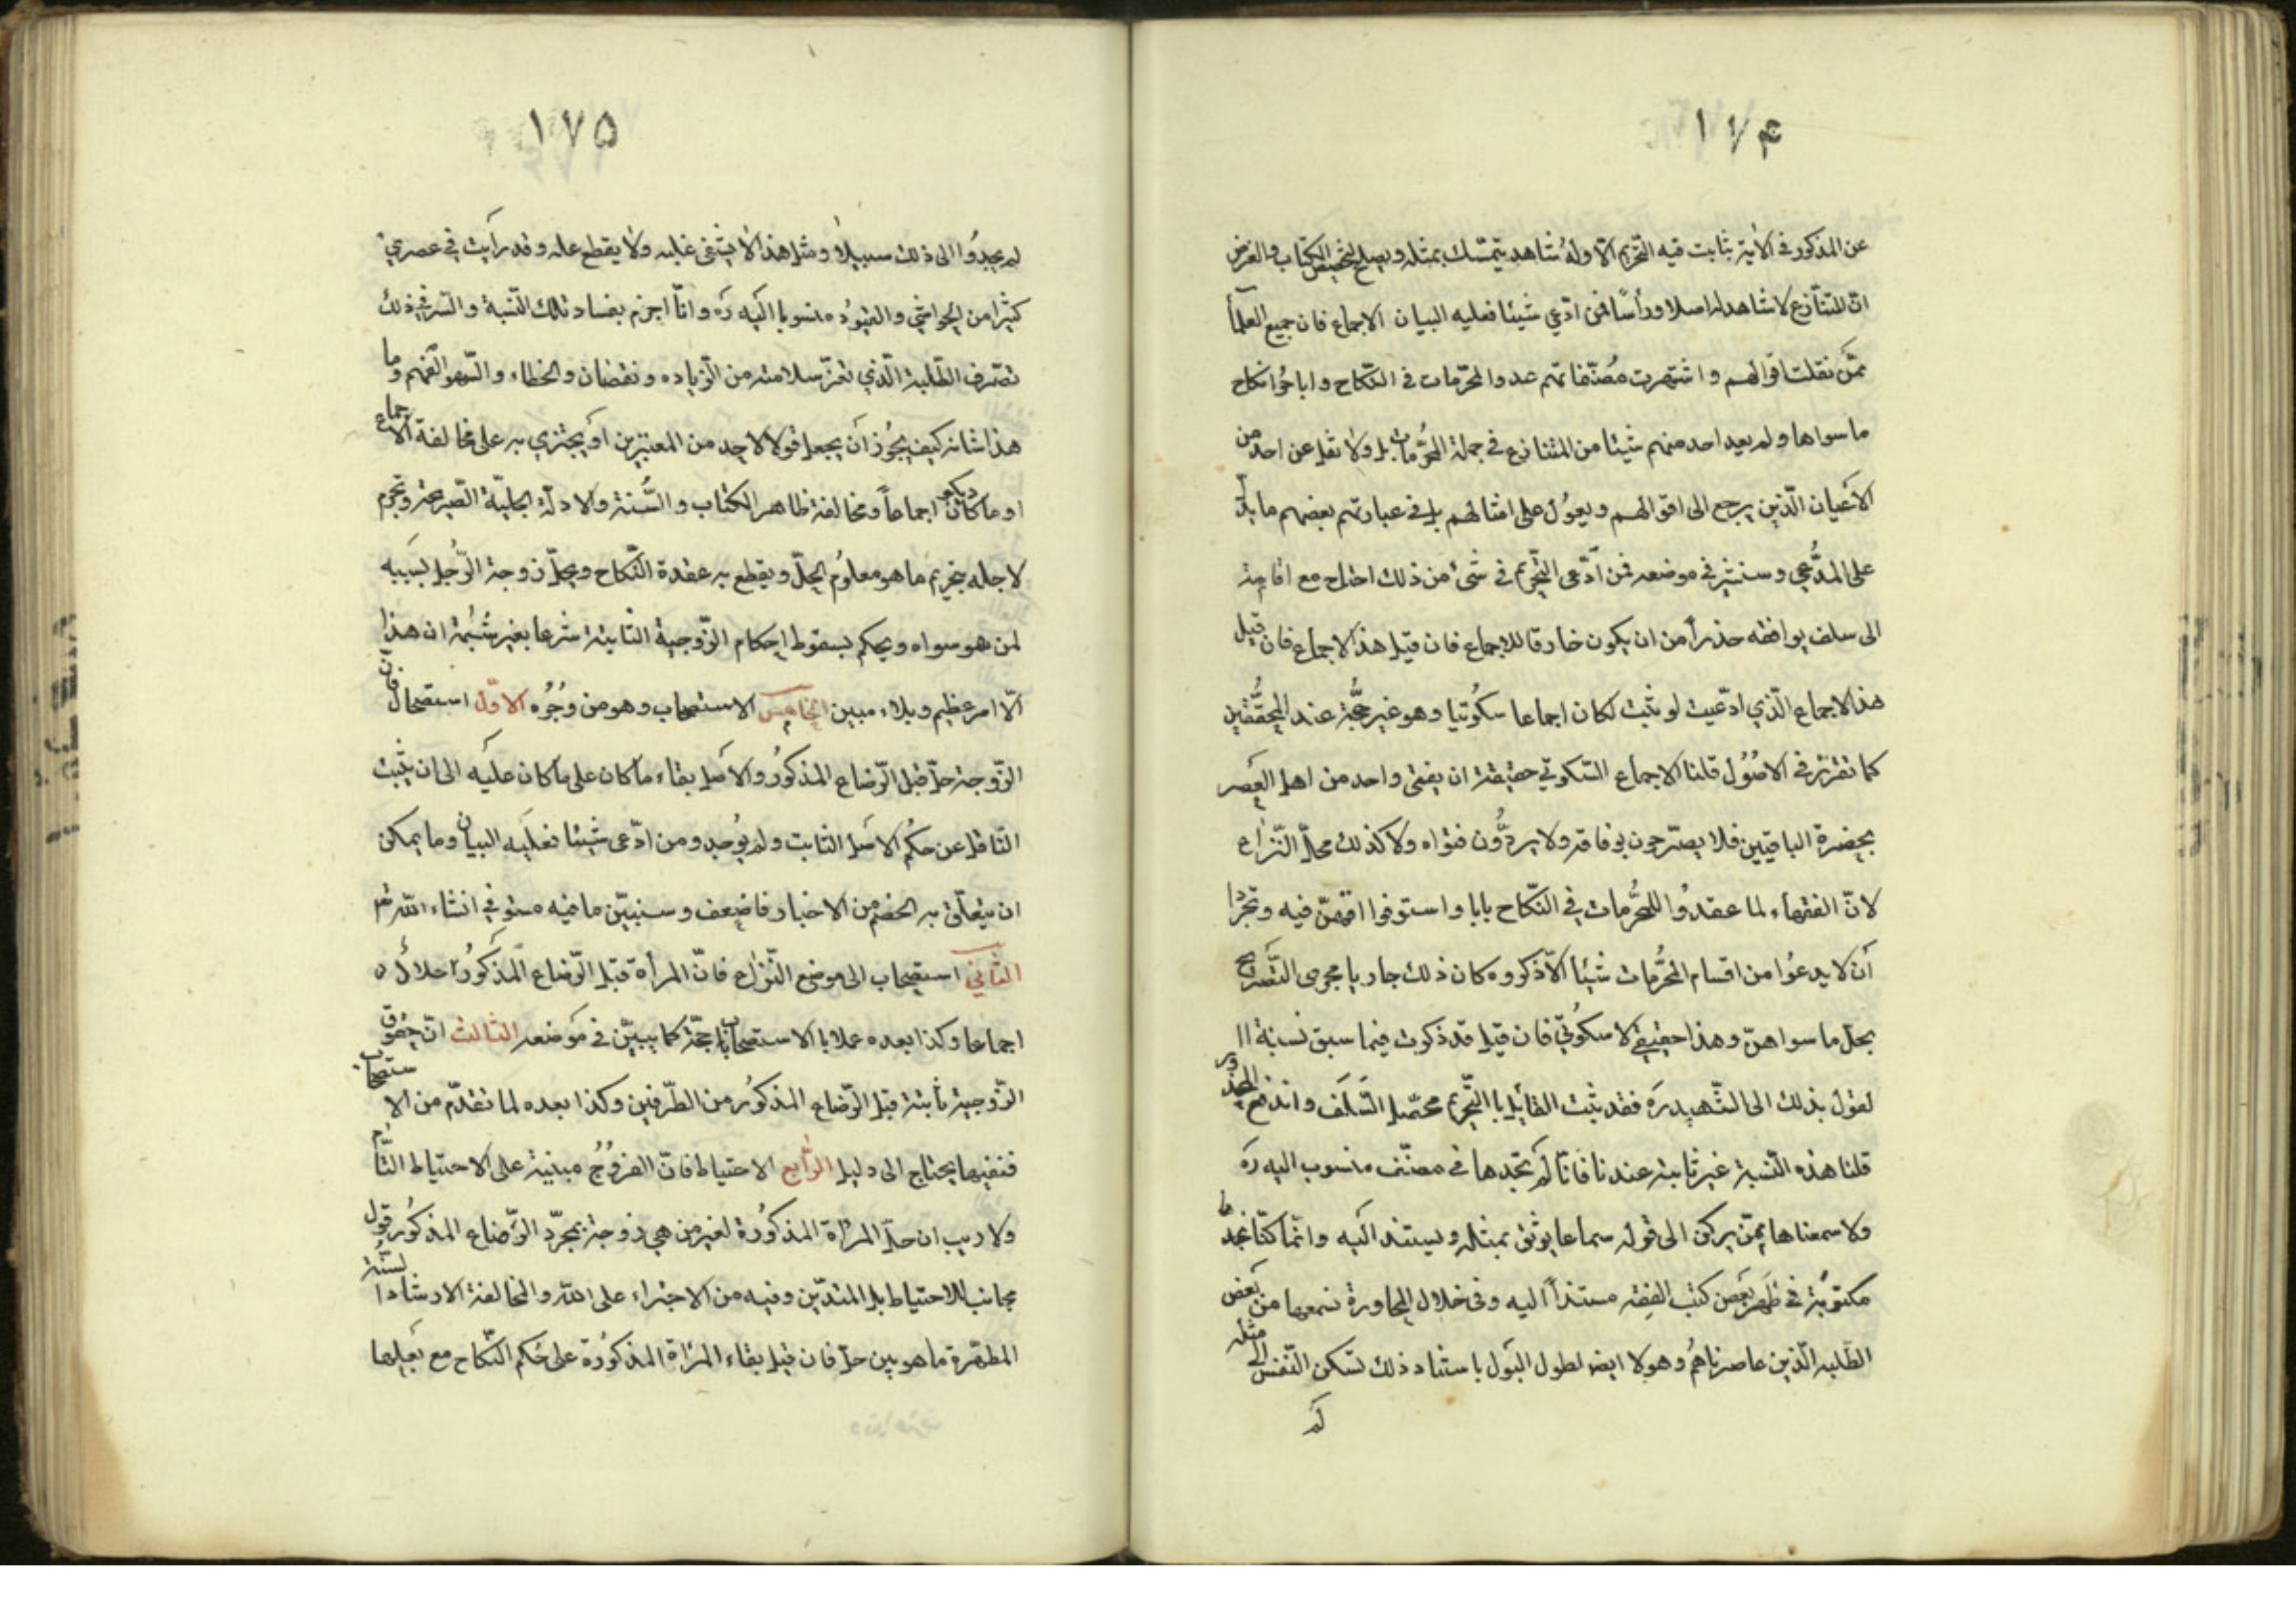 ١٧۴
عن المذكور في الآية بثابت فيه التحريم الّا وله شاهد يتمسّك بمثله ويصلح لتخصيص الكتاب والغرض
انّ المتنازع لا شاهد له اصلا ورأسًا فمن ادّعي شيئا فعليه البيان الاجماع فان جميع العلمآء
ممّن نقلت اقوالهم واشتهرت مصنّفاتهم عدوا المحرّمات في النّكاح واباحُوا نكاح
ما سواها ولم يعد احد منهم شيئا من المتنازع في جملة المحُرّمات بل ولا نقل عن احد من
الاَعيان الّذين يرجع الى اقوالهم ويعوُل على امثالهم بل في عبارتهم بعضهم ما يدلّ
على المدُّعي وسنشير في موضعه فمن ادّعى التّحريم في شئ من ذلك احتاج مع اقامته
الى سلف يوافقه حذراً من ان يكون خارقا للاجماع فان قيل هذا الاجماع فان قيل
هذا الاجماع الّذي ادّعيت لو ثبت لكان اجماعا سكُوتيا وهو غير حجُّة عند المحقّقين
كما تقرّر في الاصُوُل قلنا الاجماع السّكوتي حقيقته ان يفتى واحد من اهل العَصر
بحضرة الباقيين فلا يصرّحون بوفاقه ولا يردُّون فتواه ولا كذلك محلّ النّزاع
لانّ الفقهاء لما عقدوُا للمحُرّمات في النّكاح بابا واستوفوا اقسهنّ فيه وتجرّدا
اَن لا يدعوُا من اقسام المحُرّمات شيئا الّا ذكروه كان ذلك جاريا مجرى التّصَريح
بحلّ ما سواهنّ وهذا حقيقي لا سكُوتيّ فان قيل قد ذكرت فيما سبق نسبة ال
لقول بذلك الى الشّهيد رَه فقد ثبت القائل با التّحريم محصّل السَلَف واندفع المحذور
قلنا هذه النّسبة غير ثابتة عندنا فانّا لَم نجدها في مصنّف منسوب اليه رَه
ولا سمعناها ممّن يركن الى قوله سماعا يوثق بمثله ويستند الَيه وانّما كنّا نجدها
مكتوبُة في ظَهر بَعض كتب الفقه مستنداً اليه وفي خلال المحاورة نسمعها من بَعض
الطَلبه الّذين عاصرناهمُ وهولا ايض لطول البَول باسناد ذلك لتسكن النّفس الى مثله
لَم
١٧۵
لم يجدُوا الى ذلك سبيلا ومثل هذا لا يشفى غليه ولا يقطع عله وقد رأيت في عصري
كثيرا من الحواشي والقيوُد منسوبا اليَه رَه وانّا اجزم بفساد تلك النّسبة والسّر في ذلك
تصّرف الطّلبة الّذي تعزّ سلامته من الزّياده ونقضان والخطاء والسّهو الفَهم وما
هذا شانه كيف يجُوز اَن يجعل قولا لاحد من المعتبرين اَو يجتزي به على مخالفة الاجماع
او ما كان ديكو اجماعاً ومخالفة ظاهر الكتاب والسُّنة والادلّة الجليّة الصّريحة وتحرم
لاجله بتحريم ما هو معلوُم الحلّ ويقطع به عقدة النّكاح ويحلّ زوجة الرّجُل بسَببه
لمن هو سواه ويحكم بسقوط احكام الزّوجية الثابتة شرعا بغير شبُهة ان هذا
الّا امر عظيم وبلاء مبين الخامس الاستصحاب وهو من وُجُوه الاوّل استصحاب فانّ
الزّوجة حلّ قبل الرّضاع المذكوُر والاَصل بقاء ما كان على ما كان علَيه الى ان يثبت
النّاقل عن حكمُ الاَصل الثابت ولم يوُجد ومن ادّعى شيئا فعلَيه البيان وما يمكن
ان يتعلّق به الخصم من الاخبار فاضعف وسنبيّن ما فيه مستوفي انشاء اللّه تعر
الثّاني استصحاب الى موضع النّزاع فانّ المرأة قبل الرّضاع المَذكوُر احلالُ ه
اجماعا وكذا بعده عملا با الاستصحاب با حجّة كما يبيّن في مَوضعه الثالث انّ حقوق
الزّوجية ثابتة قبل الرّضاع المذكوُر من الطّرفين وكذا بعده لما تقدّم من الاستصحاب
فنفيها يحتاج الى دليل الرّابع الاحتياط فانّ الفروُج مبنية على الاحتياط التّام
ولا ريب ان حلّ المرأة المذكوُرة لغير من هي زوجة بمجرّد الرّضاع المذكوُر قول
مجانب للاحتياط بل المتديّن وفيه من الاجتراء على اللّه والمخالفة الارشاد السّنُة
المطهّرة ما هو بين حلّ فان قيل بقاء المرَاة المذكوُرة على حُكم النّكاح مع بَعلها